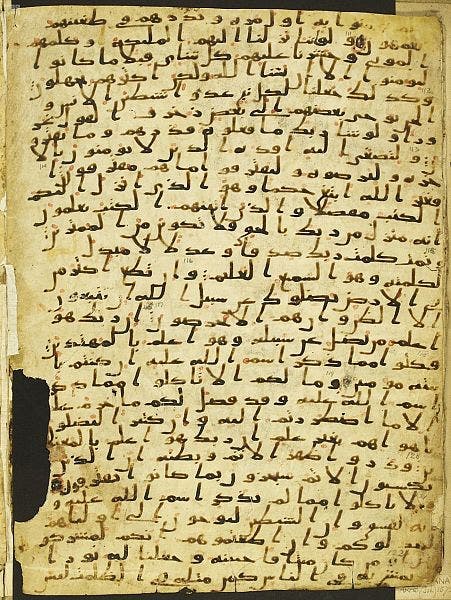 يومنوا به اول مرة ونذرهم في طغينهم
يعمهون ولو اننا نزلنا اليهم الملئكة وكلمهم
الموتى وحشرنا عليهم كل شاي قبلا ما كانوا
ليومنوا الا ان يشا الله ولكن اكثرهم يجهلون
وكذلك جعلنا لكل نبي عدوا شيطين الانس و
الجن يوحي بعضهم الى بعض زخرف القول غرو
را ولو شا ربك ما فعلوه فذرهم وما يفترو
ن ولتصغى اليه افدة الذين لا يومنون بالا
خرة وليرضوه وليقترفوا ما هم مقترفون ا
فغير الله ابتغي حكما وهو الذي انزل اليكم
الكتب مفصلا والذين اتينهم الكتب يعلمون
انه منزل من ربك بالحق فلا تكونن من الممترين
وتمت كلمت ربك صدقا وعدلا لا مبدل
لكلمته وهو السميع العليم وان تطع اكثر من
في الارض يضلوك عن سبيل الله ان يتبعون
الا الظن وان هم الا يخرصون ان ربك هو
اعلم من يضل عن سبيله وهو اعلم بالمهتدين
فكلوا مما ذكر اسم الله عليه ان كنتم با
يته مومنين وما لكم الا تاكلوا مما ذكر
اسم الله عليه وقد فصل لكم ما حرم عليكم
الا ما اضطررتم اليه وان كثيرا ليضلون
باهوايهم بغير علم ان ربك هو اعلم بالمعتد
ين وذروا ظهر الاثم وبطنه ان الذين
يكسبون الاثم سيجزون بما كانوا يقترفون
ولا تاكلوا مما لم يذكر اسم الله عليه و
انه لفسق وان الشيطين ليوحون الى اوليايهم
ليجدلوكم وان اطعتموهم انكم لمشركو
ن او من كان ميتا فاحيينه وجعلنا له نورا
يمشي به في الناس كمن مثله في الظلمت ليس